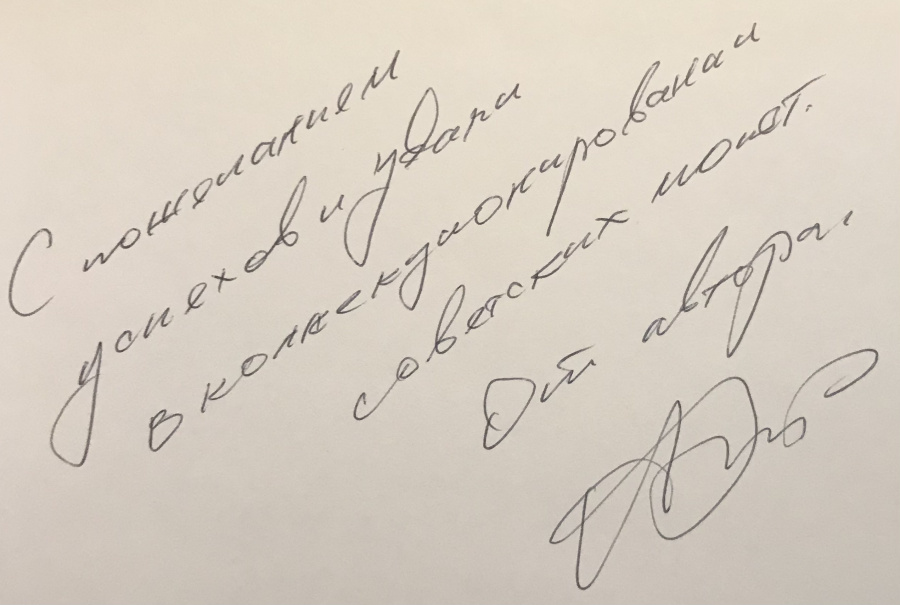 С пожеланием
успехов и удачи
в коллекционировании
советских монет.
От автора.